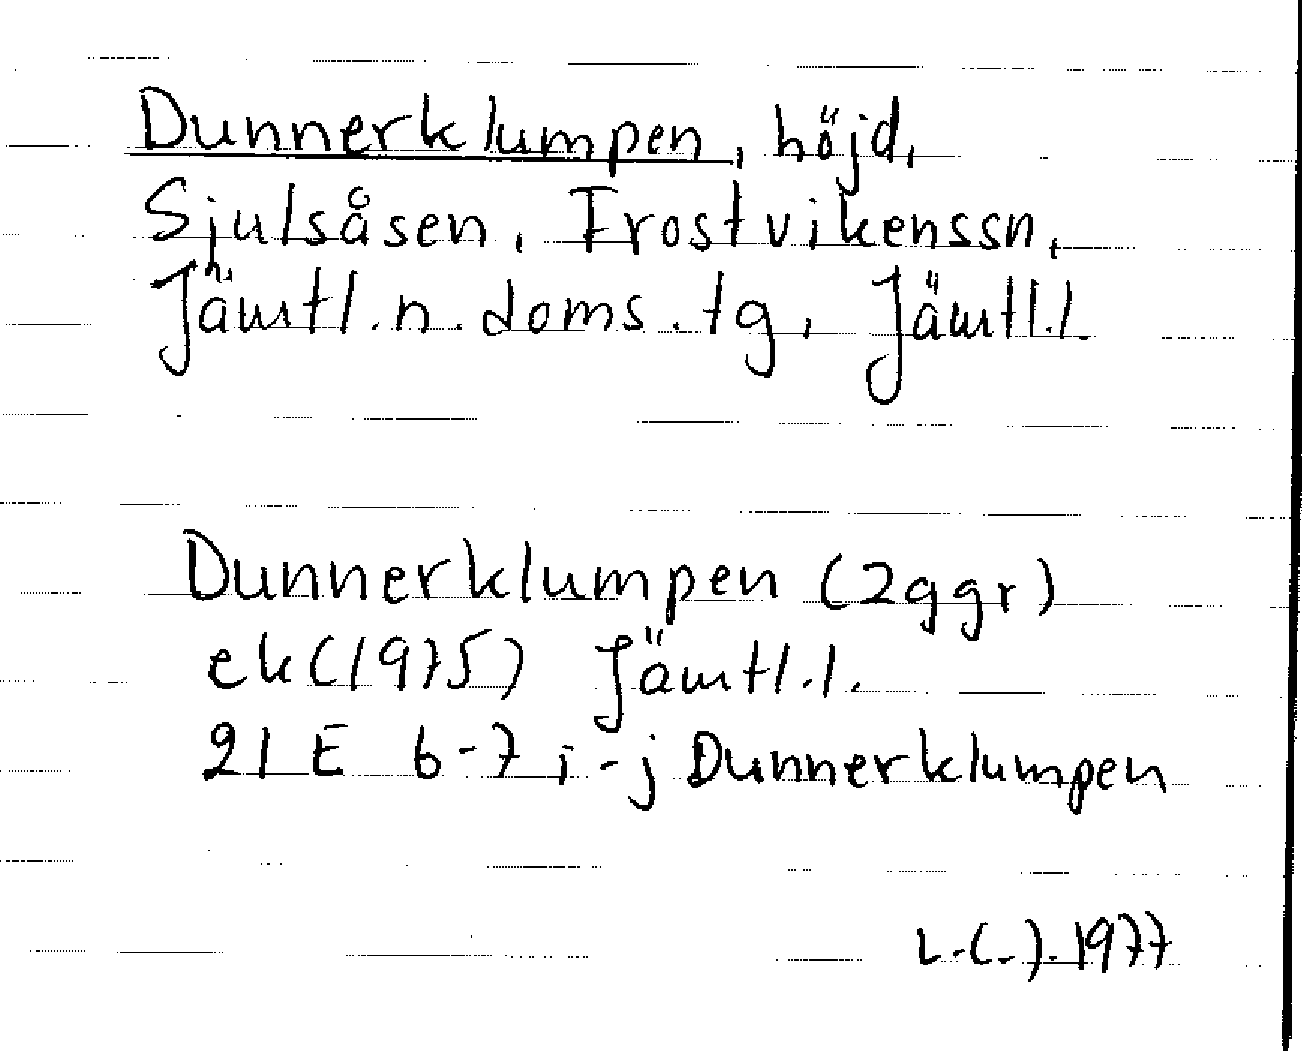 Dunnerklumpen, höjd,
Sjulsåsen, Frostvikenssn,
Jämtl.n.doms.tg, Jämtl.l.
Dunnerklumpen (2ggr)
ek(1975) Jämtl.l.
21E 6-7 i-j Dunnerklumpen
L.(-).1977